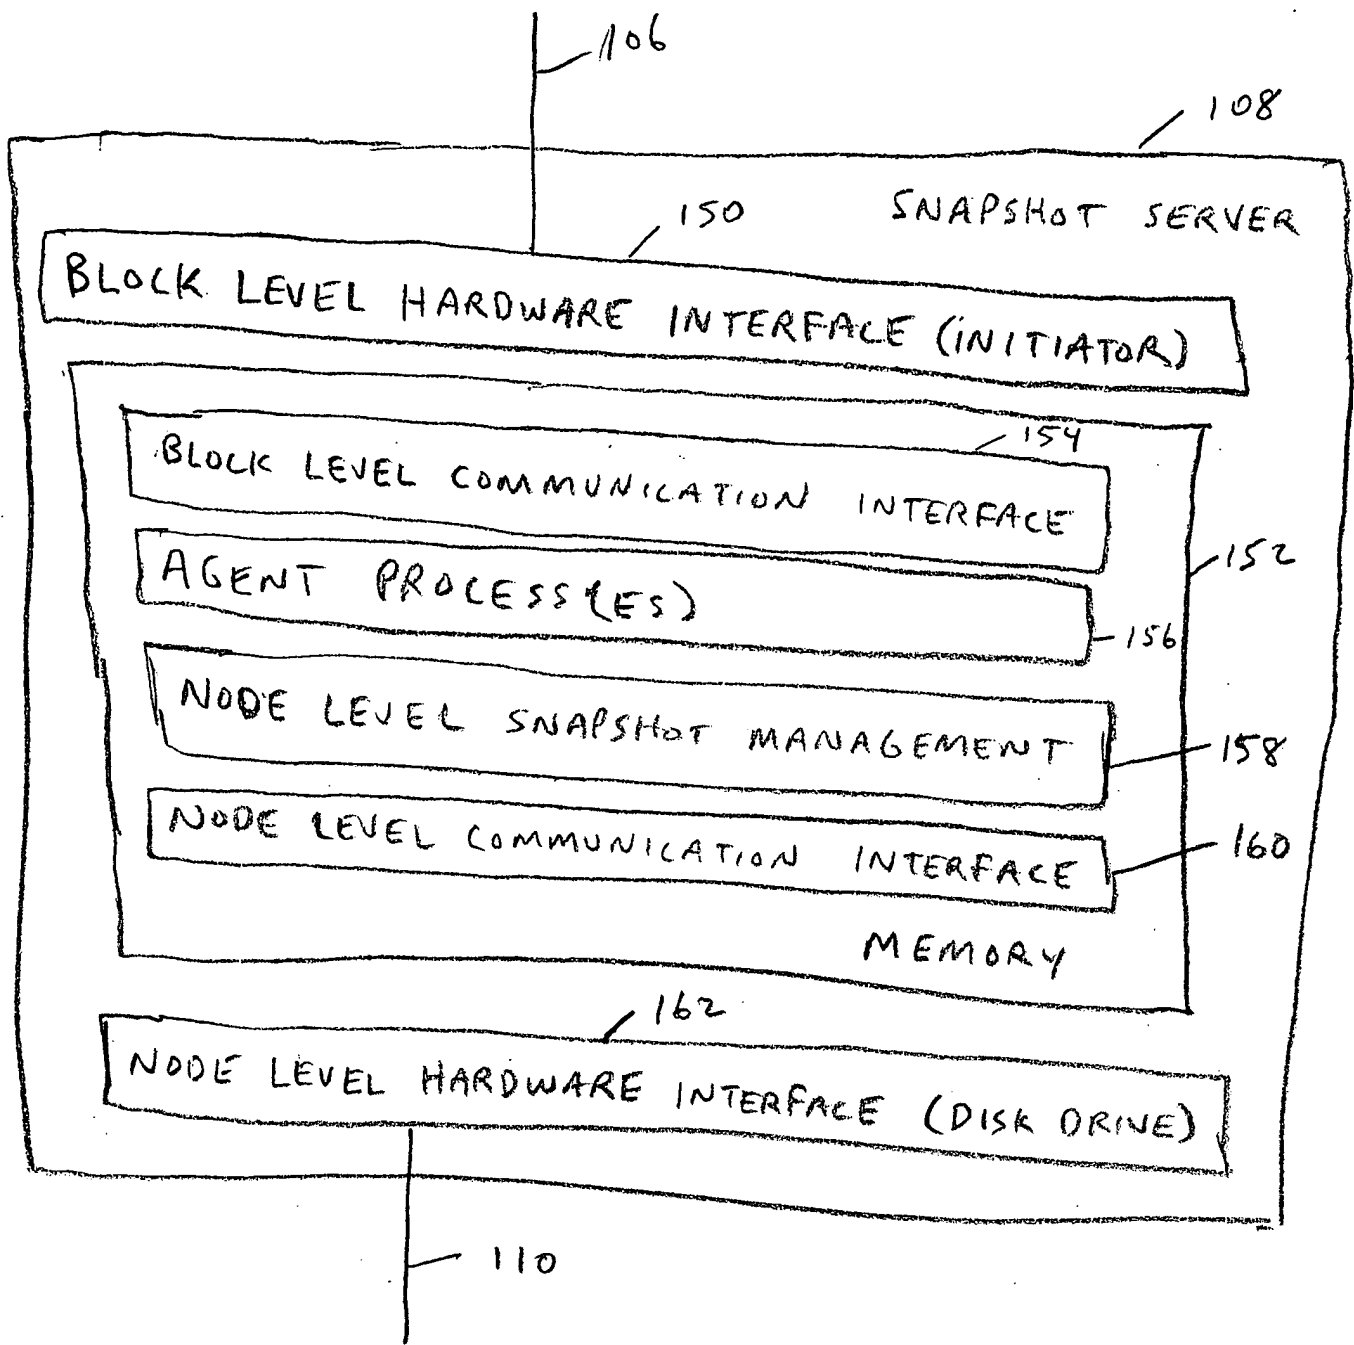 106
108
SNAPSHOT SERVER
150
BLOCK LEVEL HARDWARE INTERFACE (INITIATOR)
154
BLOCK LEVEL COMMUNICATION INTERFACE
152
AGENT PROCESS(ES)
156
NODE LEVEL SNAPSHOT MANAGEMENT
158
NODE LEVEL COMMUNICATION INTERFACE
160
MEMORY
162
NODE LEVEL HARDWARE INTERFACE (DISK DRIVE)
110